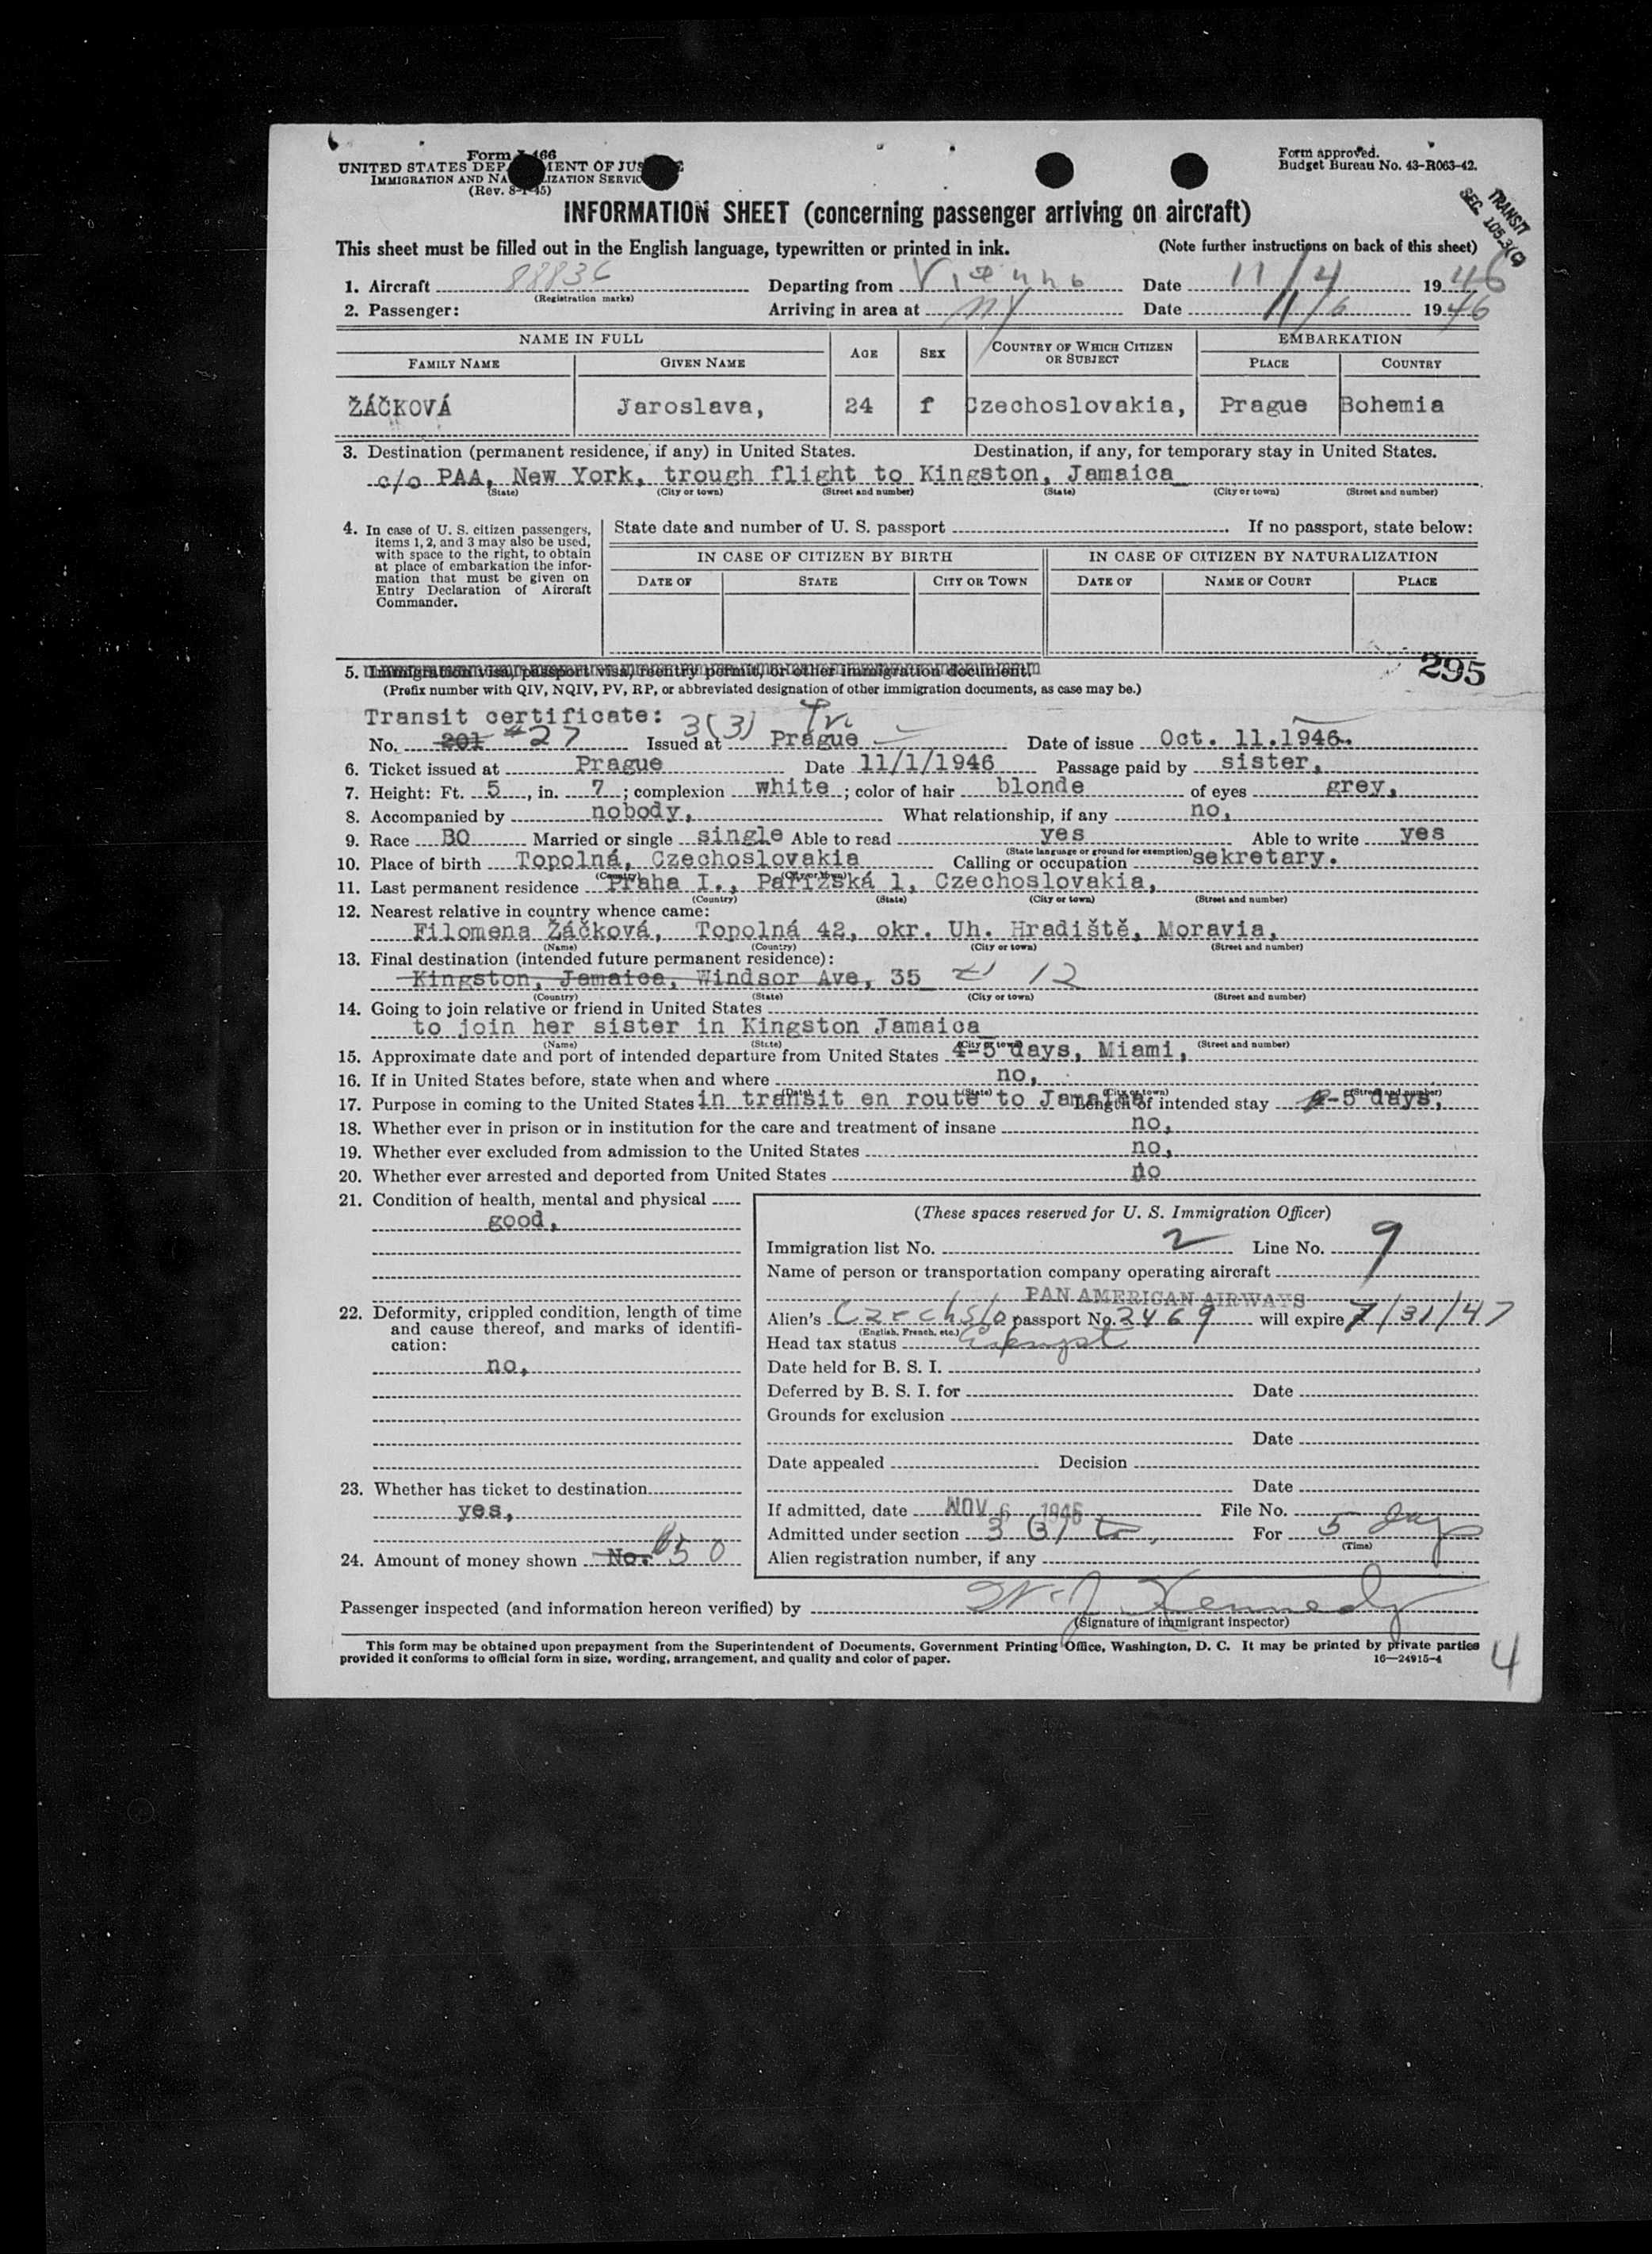 Form I-466
UNITED STATES DEPARTMENT OF JUSTICE
IMMIGRATION AND NATURALIZATION SERVICE
(Rev. 8-1-45)
Form approved.
Budget Bureau No. 43-R063-42.
TRANSIT
SEC. 105.3(C)
INFORMATION SHEET (concerning passenger arriving on aircraft)
This sheet must be filled out in the English language, typewritten or printed in ink. (Note further instructions on back of this sheet)
1. Aircraft 88836 Departing from Vienna Date 11/4 1946
(Registration marks)
2. Passenger: Arriving in area at NY Date 11/6 1946
NAME IN FULL AGE SEX COUNTRY OF WHICH CITIZEN OR SUBJECT EMBARKATION
FAMILY NAME GIVEN NAME PLACE COUNTRY
ŽÁČKOVÁ Jaroslava, 24 f Czechoslovakia, Prague Bohemia
3. Destination (permanent residence, if any) in United States. Destination, if any, for temporary stay in United States.
c/o PAA, New York, trough flight to Kingston, Jamaica
(State) (City or town) (Street and number) (State) (City or town) (Street and number)
4. In case of U. S. citizen passengers, items 1, 2, and 3 may also be used, with space to the right, to obtain at place of embarkation the information that must be given on Entry Declaration of Aircraft Commander.
State date and number of U. S. passport If no passport, state below:
IN CASE OF CITIZEN BY BIRTH IN CASE OF CITIZEN BY NATURALIZATION
DATE OF STATE CITY OR TOWN DATE OF NAME OF COURT PLACE
295
5. Immigration visa, passport visa, reentry permit, or other immigration document.
(Prefix number with QIV, NQIV, PV, RP, or abbreviated designation of other immigration documents, as case may be.)
Transit certificate: 3(3) Tr.
No. 201 #27 Issued at Prague Date of issue Oct. 11.1946.
6. Ticket issued at Prague Date 11/1/1946 Passage paid by sister,
7. Height: Ft. 5, in. 7; complexion white; color of hair blonde of eyes grey,
8. Accompanied by nobody, What relationship, if any no,
9. Race BO Married or single single Able to read yes Able to write yes
(State language or ground for exemption)
10. Place of birth Topolná, Czechoslovakia Calling or occupation sekretary.
(Country) (City or town)
11. Last permanent residence Praha I., Pařížská 1, Czechoslovakia,
(Country) (State) (City or town) (Street and number)
12. Nearest relative in country whence came:
Filomena Žáčková, Topolná 42, okr. Uh. Hradiště, Moravia,
(Name) (Country) (City or town) (Street and number)
13. Final destination (intended future permanent residence):
Kingston, Jamaica, Windsor Ave, 35 12
(Country) (State) (City or town) (Street and number)
14. Going to join relative or friend in United States
to join her sister in Kingston Jamaica
(Name) (State) (City or town) (Street and number)
15. Approximate date and port of intended departure from United States 4-5 days, Miami,
16. If in United States before, state when and where no,
(Date) (State) (City or town) (Street and number)
17. Purpose in coming to the United States in transit en route to Jamaica Length of intended stay -5 days,
18. Whether ever in prison or in institution for the care and treatment of insane no,
19. Whether ever excluded from admission to the United States no,
20. Whether ever arrested and deported from United States no
21. Condition of health, mental and physical
good,
22. Deformity, crippled condition, length of time and cause thereof, and marks of identification:
no,
23. Whether has ticket to destination
yes,
24. Amount of money shown No. 50
(These spaces reserved for U. S. Immigration Officer)
Immigration list No. 2 Line No. 9
Name of person or transportation company operating aircraft
PAN AMERICAN AIRWAYS
Alien's Czechslo passport No. 2469 will expire 7/31/47
(English, French, etc.)
Head tax status Exempt
Date held for B. S. I.
Deferred by B. S. I. for Date
Grounds for exclusion
Date
Date appealed Decision
Date
If admitted, date NOV 6 1946 File No.
Admitted under section 3 (3) tr. For 5 days
(Time)
Alien registration number, if any
Passenger inspected (and information hereon verified) by W. J. Kennedy
(Signature of immigrant inspector)
This form may be obtained upon prepayment from the Superintendent of Documents, Government Printing Office, Washington, D. C. It may be printed by private parties
provided it conforms to official form in size, wording, arrangement, and quality and color of paper. 16—24915-4
4